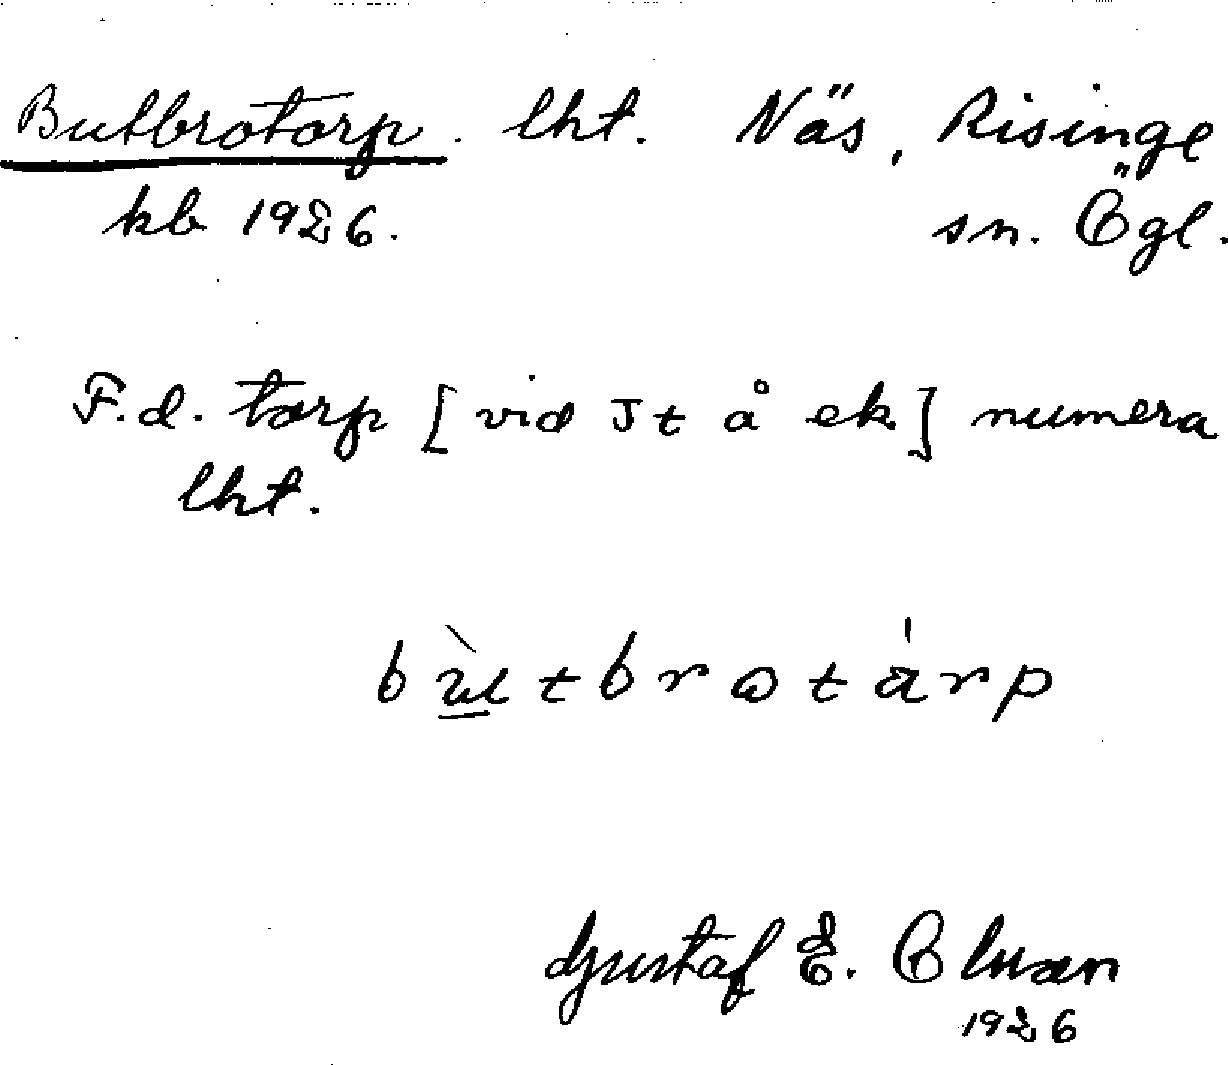 Butbrotorp. lht. Näs, Risinge
kb 1926. sn. Ögl.
F.d. torp [vid Jt å ek] numera
lht.
bùtbrotárp
Gustaf E. Olsson
1926